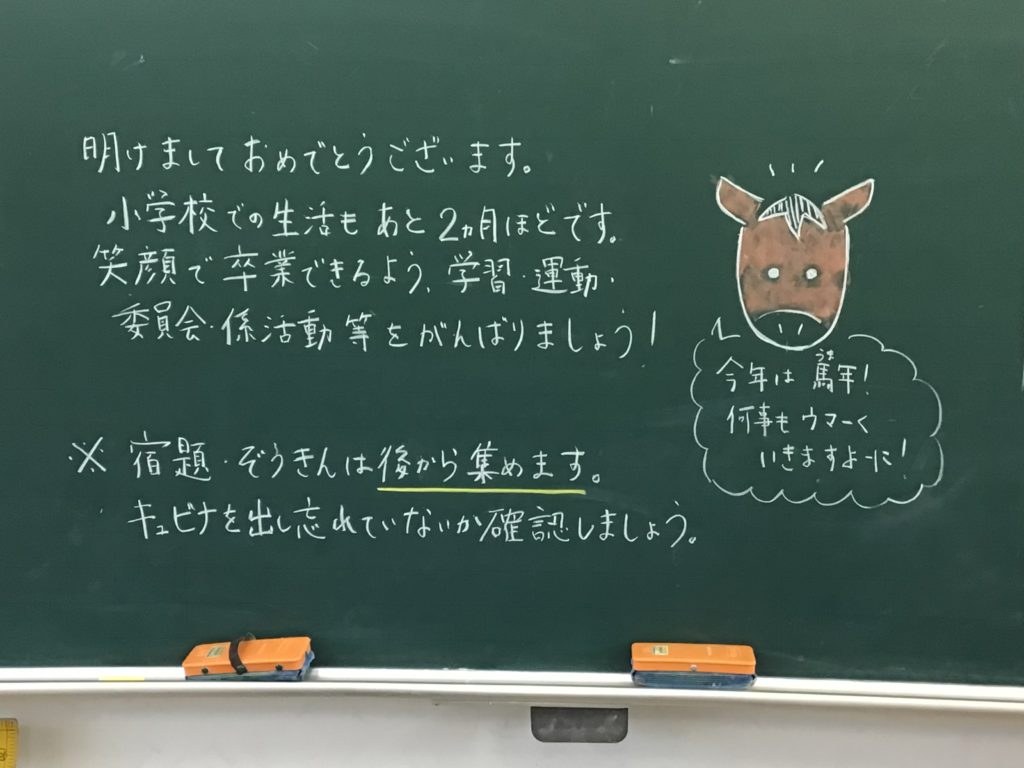 明けましておめでとうございます。
小学校での生活もあと2ヵ月ほどです。
笑顔で卒業できるよう、学習・運動・
委員会・係活動等をがんばりましょう!
※ 宿題・ぞうきんは後から集めます。
キュビナを出し忘れていないか確認しましょう。
うま
今年は馬年!
何事もウマーく
いきますよーに!